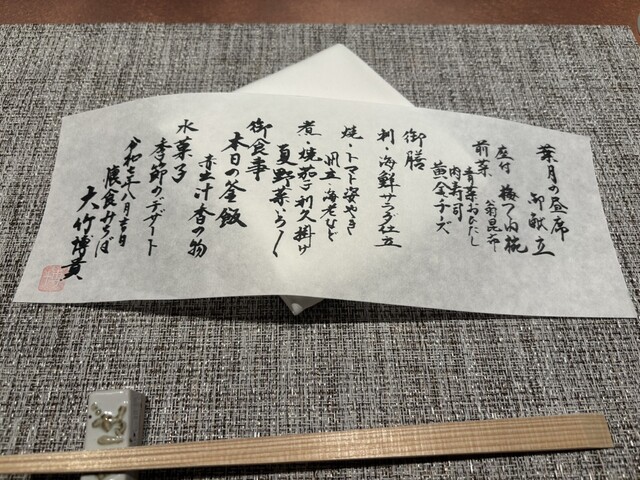 葉月の昼席
御献立
座付 梅つめ椀
翁昆布
前菜
青菜おひたし
肉寿司
黄金チーズ
御膳
刺・海鮮サラダ仕立
焼・トマト姿やき
帆立・海老など
煮・焼茄子利久掛け
夏野菜いろ〳〵
御食事
本日の釜飯
赤出汁香の物
水菓子
季節のデザート
令和七年八月吉日
膳食みちば
大竹博貢